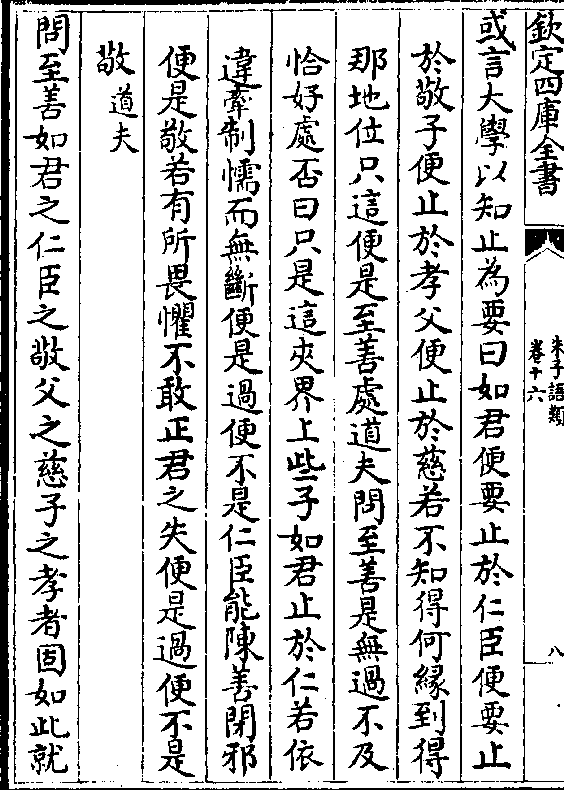 欽定四庫全書
朱子語類
卷十六
八
或言大學以知止為要曰如君便要止於仁臣便要止
於敬子便止於孝父便止於慈若不知得何緣到得
那地位只這便是至善處道夫問至善是無過不及
恰好處否曰只是這夾界上些子如君止於仁若依
違牽制懦而無斷便是過便不是仁臣能陳善閉邪
便是敬若有所畏懼不敢正君之失便是過便不是
敬道夫
問至善如君之仁臣之敬父之慈子之孝者固如此就